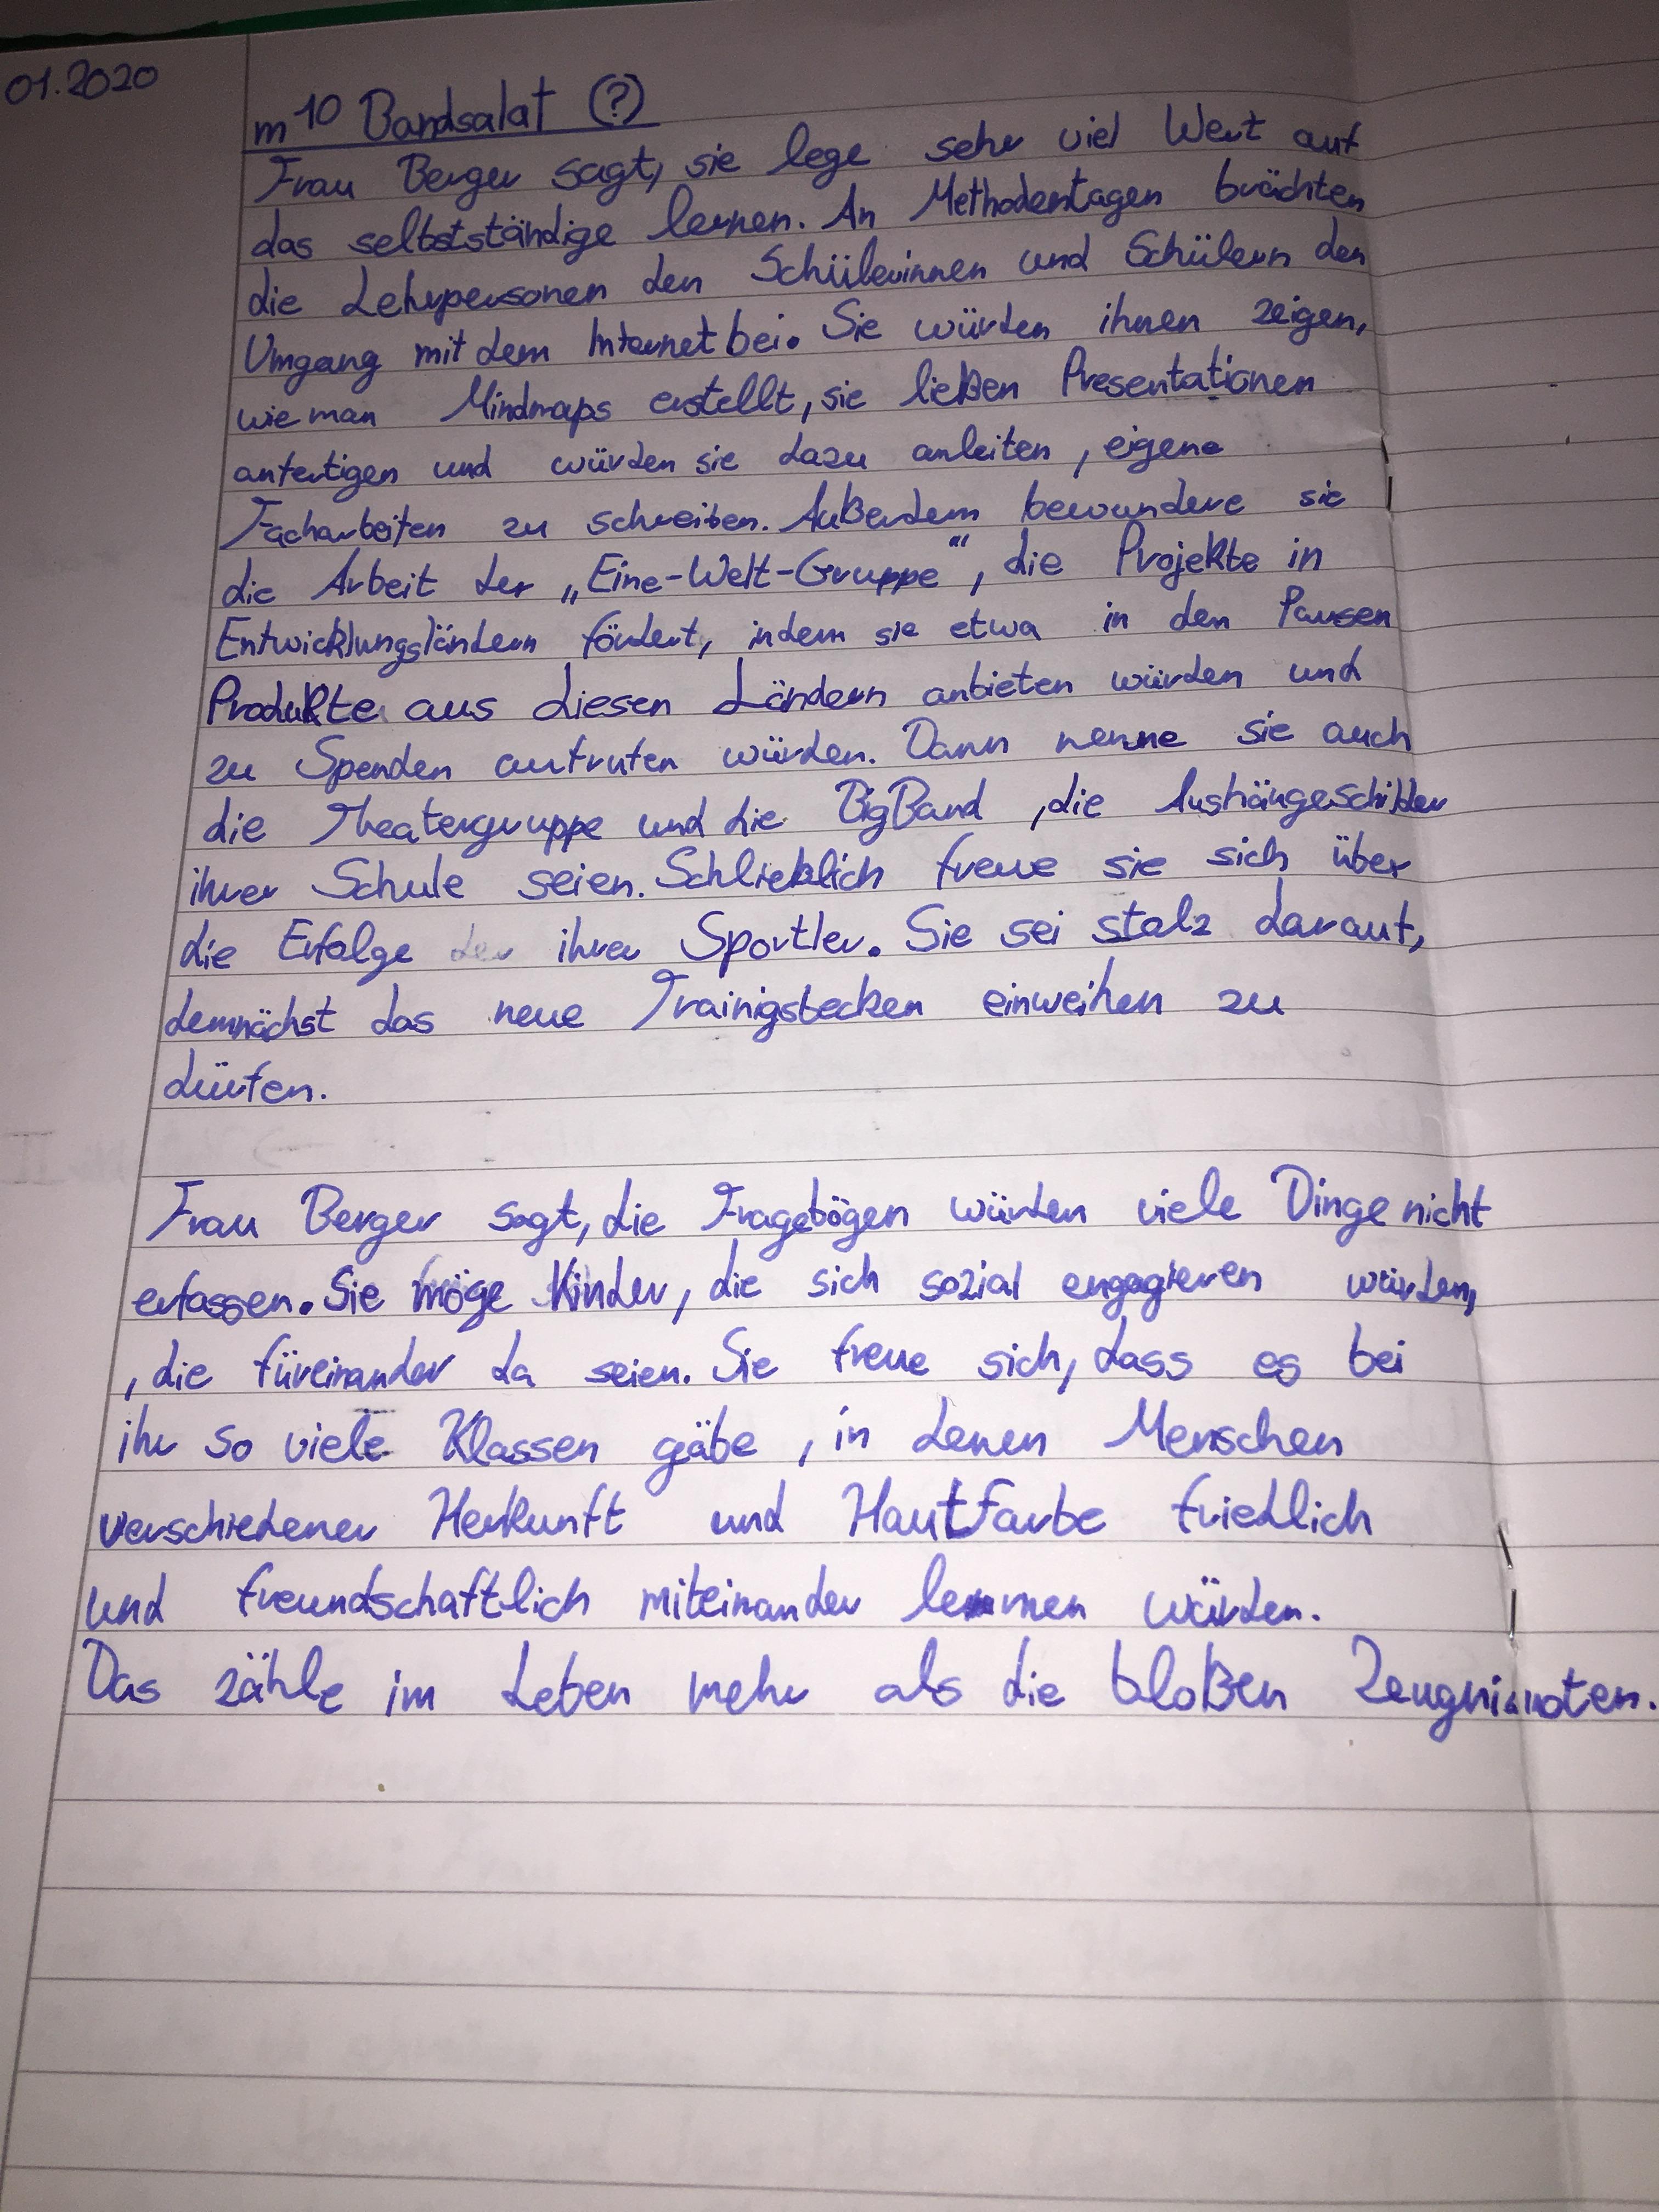 01.2020
m10 Bandsalat (?)
Frau Berger sagt, sie lege sehr viel Wert auf
das selbstständige lernen. An Methodentagen brächten
die Lehrpersonen den Schülerinnen und Schülern den
Umgang mit dem Internet bei. Sie würden ihnen zeigen,
wie man Mindmaps erstellt, sie ließen Presentationen
anfertigen und würden sie dazu anleiten, eigene
Facharbeiten zu schreiben. Außerdem bewundere sie
die Arbeit der „Eine-Welt-Gruppe", die Projekte in
Entwicklungsländern fördert, indem sie etwa in den Pausen
Produkte aus diesen Ländern anbieten würden und
zu Spenden aufrufen würden. Dann nenne sie auch
die Theatergruppe und die BigBand, die Aushängeschilder
ihrer Schule seien. Schließlich freue sie sich über
die Erfolge der ihrer Sportler. Sie sei stolz darauf,
demnächst das neue Trainigsbecken einweihen zu
dürfen.
Frau Berger sagt, die Fragebögen würden viele Dinge nicht
erfassen. Sie möge Kinder, die sich sozial engagieren würden,
, die füreinander da seien. Sie freue sich, dass es bei
ihr so viele Klassen gäbe, in denen Menschen
verschiedener Herkunft und Hautfarbe friedlich
und freundschaftlich miteinander lernen würden.
Das zähle im Leben mehr als die bloßen Zeugnisnoten.